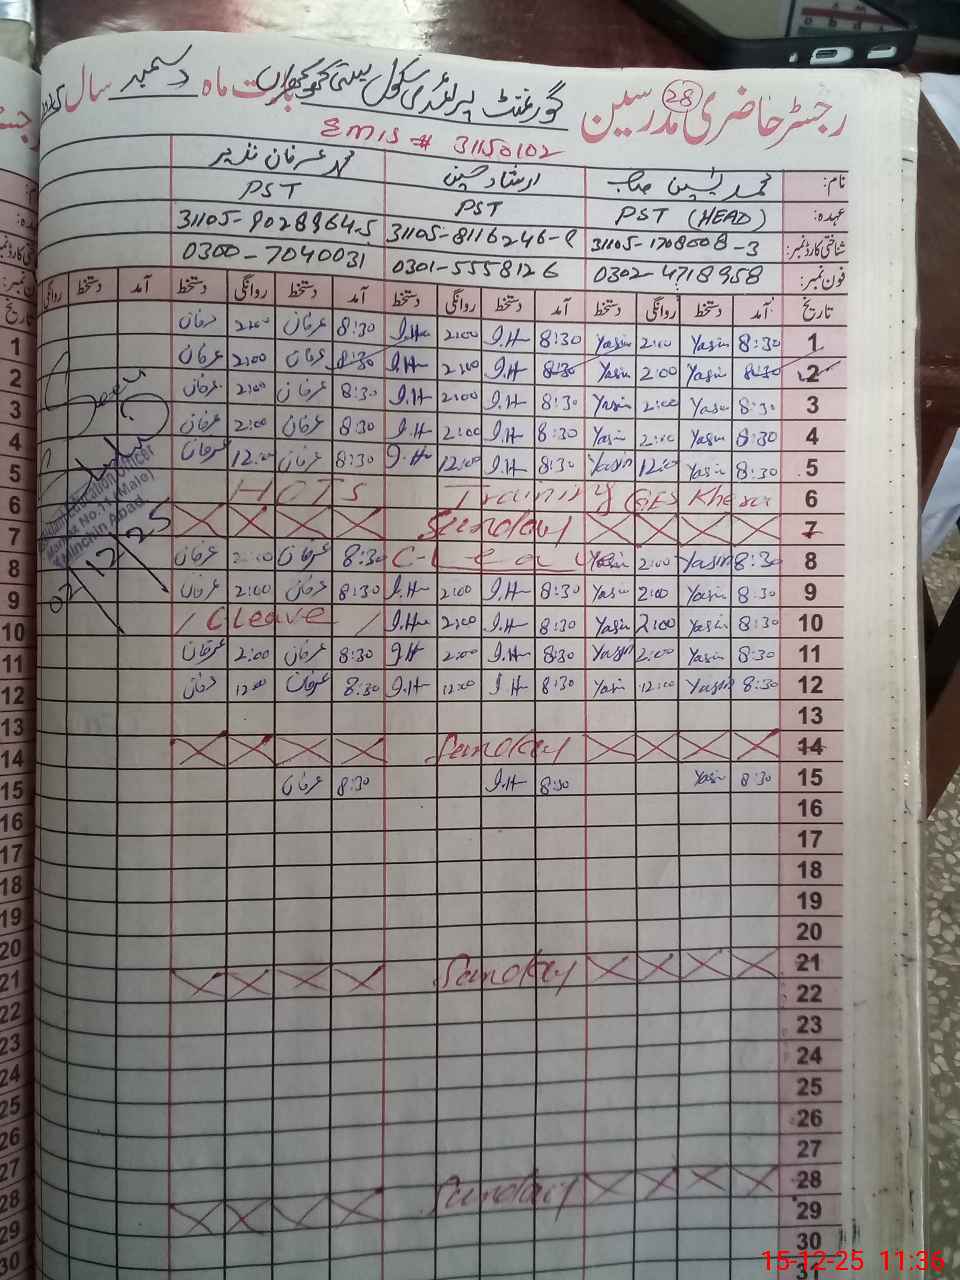 رجسٹر حاضری مدرسین 28 گورنمنٹ پرائمری سکول بستی بابت ماہ دسمبر سال
EMIS # 31150102
نام: محمد یٰسین صاحب ارشاد حسین محمد عرفان نذیر
عہدہ: PST (HEAD) PST PST
شناختی کارڈ نمبر: 31105-1708008-3 31105-8116246-9 31105-9028964-5
فون نمبر: 0302-4718958 0301-5558126 0300-7040031
تاریخ آمد دستخط روانگی دستخط آمد دستخط روانگی دستخط آمد دستخط روانگی دستخط آمد دستخط روانگی
1 8:30 Yasin 2:00 Yasin 8:30 I.H 2:00 I.H 8:30 عرفان 2:00 عرفان
2 8:30 Yasin 2:00 Yasin 8:30 I.H 2:00 I.H 8:30 عرفان 2:00 عرفان
3 8:30 Yasin 2:00 Yasin 8:30 I.H 2:00 I.H 8:30 عرفان 2:00 عرفان
4 8:30 Yasin 2:00 Yasin 8:30 I.H 2:00 I.H 8:30 عرفان 2:00 عرفان
5 8:30 Yasin 12:00 Yasin 8:30 I.H 12:00 I.H 8:30 عرفان 12:00 عرفان
6 HOTS Training GES Khera
7 Sunday
8 8:30 Yasin 2:00 Yasin C-Leave 8:30 عرفان 2:00 عرفان
9 8:30 Yasin 2:00 Yasin 8:30 I.H 2:00 I.H 8:30 عرفان 2:00 عرفان
10 8:30 Yasin 2:00 Yasin 8:30 I.H 2:00 I.H / C Leave /
11 8:30 Yasin 2:00 Yasin 8:30 I.H 2:00 I.H 8:30 عرفان 2:00 عرفان
12 8:30 Yasin 12:00 Yasin 8:30 I.H 12:00 I.H 8:30 عرفان 12:00 عرفان
13
14 Sunday
15 8:30 Yasin 8:30 I.H 8:30 عرفان
16
17
18
19
20
21 Sunday
22
23
24
25
26
27
28 Sunday
29
30
31
Seen
Assistant Education Officer
Markaz No. 11 (Male)
Minchin Abad
02/12/25
15-12-25 11:36